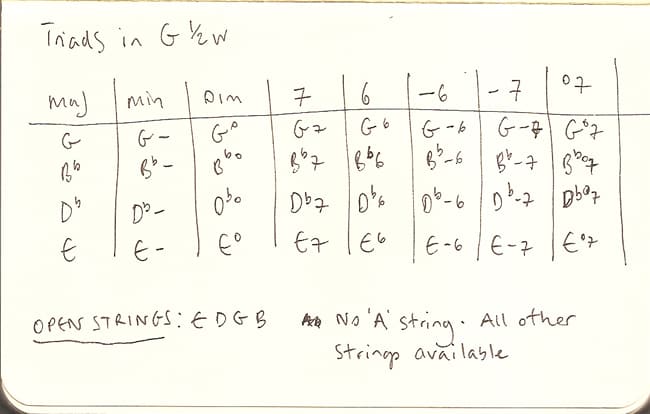 Triads in G ½w
Maj | Min | Dim | 7 | 6 | -6 | -7 | °7
G | G- | G° | G7 | G6 | G-6 | G-7 | G°7
B♭ | B♭- | B♭° | B♭7 | B♭6 | B♭-6 | B♭-7 | B♭°7
D♭ | D♭- | D♭° | D♭7 | D♭6 | D♭-6 | D♭-7 | D♭°7
E | E- | E° | E7 | E6 | E-6 | E-7 | E°7
OPEN STRINGS: E D G B No 'A' string. All other
strings available